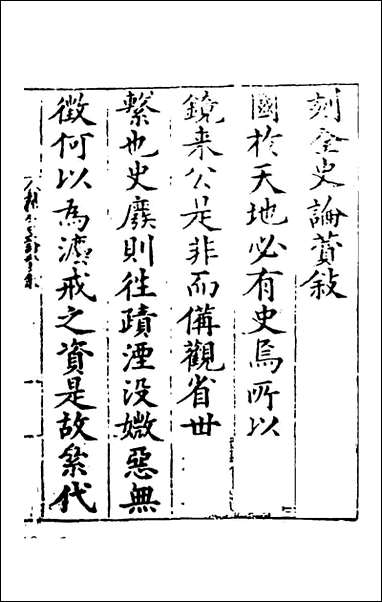 刻全史論贊敍
國於天地必有史焉所以
鏡来公是非而備觀省丗
繫也史廢則徃蹟湮没媺惡無
徵何以為灋戒之資是故絫代